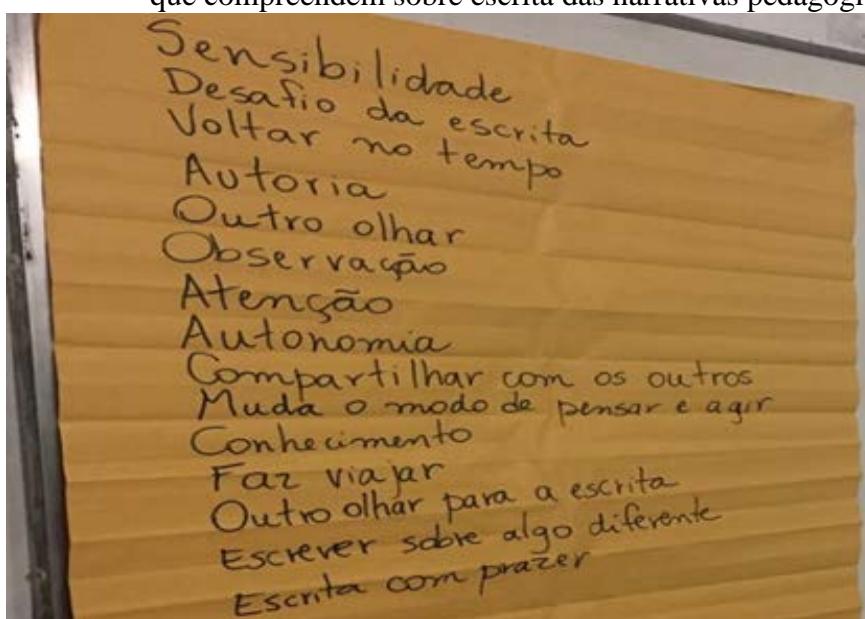 que compreendem sobre escrita das narrativas pedagógi
Sensibilidade
Desafio da escrita
Voltar no tempo
Autoria
Outro olhar
Observação
Atenção
Autonomia
Compartilhar com os outros
Muda o modo de pensar e agir
Conhecimento
Faz viajar
Outro olhar para a escrita
Escrever sobre algo diferente
Escrita com prazer